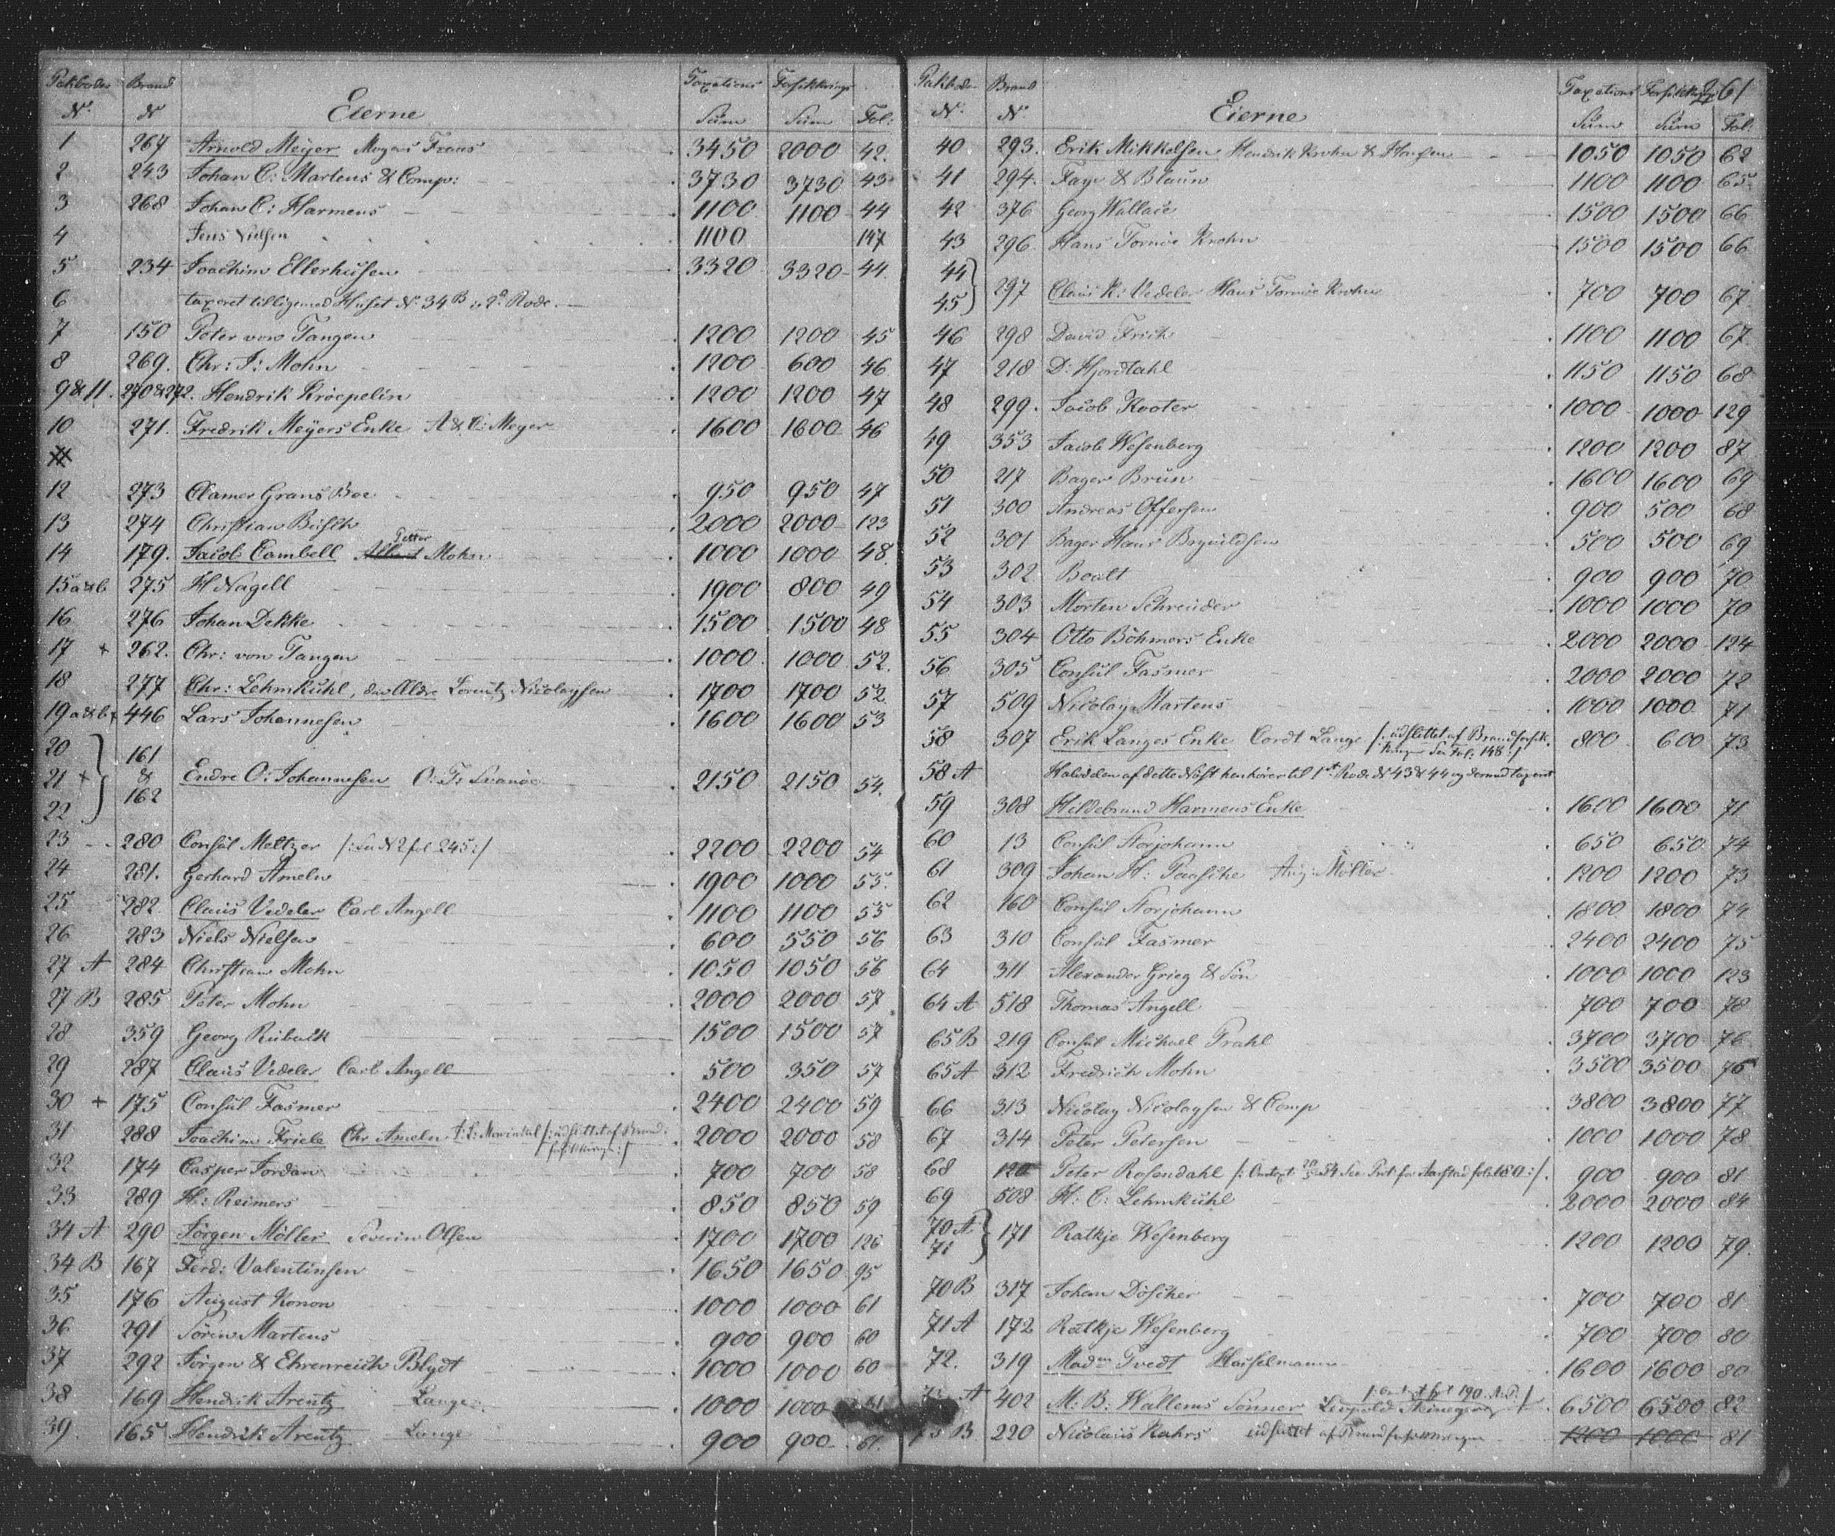 Pakbodes Brand Taxations Forsikkrings
No. No Eierne Sum Sum Fol:
1 267 Arnold Meyer Meyers 3450 2000 42.
2 243 Johan C: Martens & Comp: 3730 3730 43
3 268 Johan C: Harmens 1100 1100 44
4 Jens Nielsen 1100 147
5 234 Joachim Ellerhusen 3320 3320 44
6 taxeret tilligemed Huset No 34 B i 2d Rode.
7 150 Peter von Tangen 1200 1200 45
8 269. Chr: J: Mohn 1200 600 46
9 & 11. 270 & 272. Hendrik Kroepelin 1200 1200 47
10 271. Fredrik Meyers Enke A & C: Meyer 1600 1600 46
12 273 Clamer Grans Boe 950 950 47
13 274 Christian Busch 2000 2000 123
14 179. Jacob Cambell Albert Petter Mohn 1000 1000 48
15 a & b 275 H Nagell 1900 800 49
16 276 Johan Dekke 1500 1500 48
17 + 262. Chr: von Tangen 1000 1000 52.
18 277 Chr: Lehmkuhl, den Eldre Lorentz Nicolaysen 1700 1700 52
19 a & b + 446 Lars Johannesen 1600 1600 53
20 161
21 + & Endre O: Johannesen O: J: Svanöe 2150 2150 54.
22 162
23 280 Consul Meltzer /: See No 2 fol 245 :/ 2200 2200 54
24 281. Gerhard Ameln 1900 1000 55.
25 282. Claus Vedeler Carl Angell 1100 1100 55
26 283 Niels Nielsen 600 550 56
27 A 284 Christian Mohn 1050 1050 56
27 B 285 Peter Mohn 2000 2000 57
28 359 Georg 1500 1500 57
29 287 Claus Vedeler Carl Angell 500 350 57
30 + 175 Consul Fasmer 2400 2400 59
31 288 Joachim Friele Chr Ameln /: udslettet af Brand- 2000 2000 58
32 174 Casper Jordan 700 700 58
33 289 H: Reimers 850 850 59
34 A 290 Jörgen Möller Severin Olsen 1700 1700 126
34 B 167 Ferd: Valentinsen 1650 1650 95
35 176 August Konow 1000 1000 61
36 291 Sören Martens 900 900 60
37 292 Jörgen & Ehrenreich Blydt 1000 1000 60
38 169 Hendrik Arentz Lange 1000 1000 61
39. 165 Hendrik Arentz Lange 900 900 61.
261
Pakbodes Brand Taxations Forsikkrings
No. No. Eierne Sum Sum Fol:
40 293. Erik Mikkelsen Hendrik Krohn & 1050 1050 62
41 294. Faye & Blaun 1100 1100 65
42 376 Georg Wallace 1500 1500 66
43 296. Hans Tornöe Krohn 1500 1500 66
44
45 297 Claus K: Vedeler Hans Tornöe Krohn 700 700 67
46 298 David Frich 1100 1100 67
47 218 D: Hjordtahl 1150 1150 68
48 299. Jacob Kooter 1000 1000 129
49 353 Jacob Wesenberg 1200 1200 87
50 217 Bager Brun 1600 1600 69
51 300 Andreas Offersen 900 500 68
52 301 Bager Hans 500 500 69
53 302 Boalt 900 900 70
54 303 Morten Schreuder 1000 1000 70
55 304 Otto Böhmers Enke 2000 2000 124
56 305 Consul Fasmer 2000 2000 72
57 509 Nicolay Martens 1000 1000 71
58 307 Erik Langes Enke Cordt Lange /: udslettet af Brandforsik- 800 600 73
kringen See Fol: 148 :/
58 A Halvdelen af dette Nöst henhörer til 1ste Rode No 43 & 44 og dermed taxeret
59 308 Hildebrand Harmens Enke 1600 1600 71
60 13 Consul Storjohann 650 650 74
61 309 Johan H: Paasche Aug: Möller 1200 1200 73
62 160 Consul Storjohann 1800 1800 74
63 310 Consul Fasmer 2400 2400 75
64 311 Alexander Grieg & Sön 1000 1000 123
64 A 518 Thomas Angell 700 700 78
65 B 219 Consul Michael Prahl 3700 3700 76
65 A 312 Fredrich Mohn 3500 3500 76
66 313 Nicolay Nicolaysen & Comp 3800 3800 77
67 314 Peter Petersen 1000 1000 78
68 Peter Rosendahl 900 900 81
69 508 H: C: Lehmkuhl 2000 2000 84
70 A
71 171 Ratkje Wesenberg 1200 1200 79.
70 B 317 Johan Döscher 700 700 81
71 A 172 Ratkje Wesenberg 700 700 80
72. 319 Madm Tvedt Hasselmann 1600 1600 80
73 A 402 M: B: Wallems Sönner Leopold 6500 6500 82
73 B 220 Nicolaus Kahrs udslettet af Brandforsikkringen 1200 1000 81